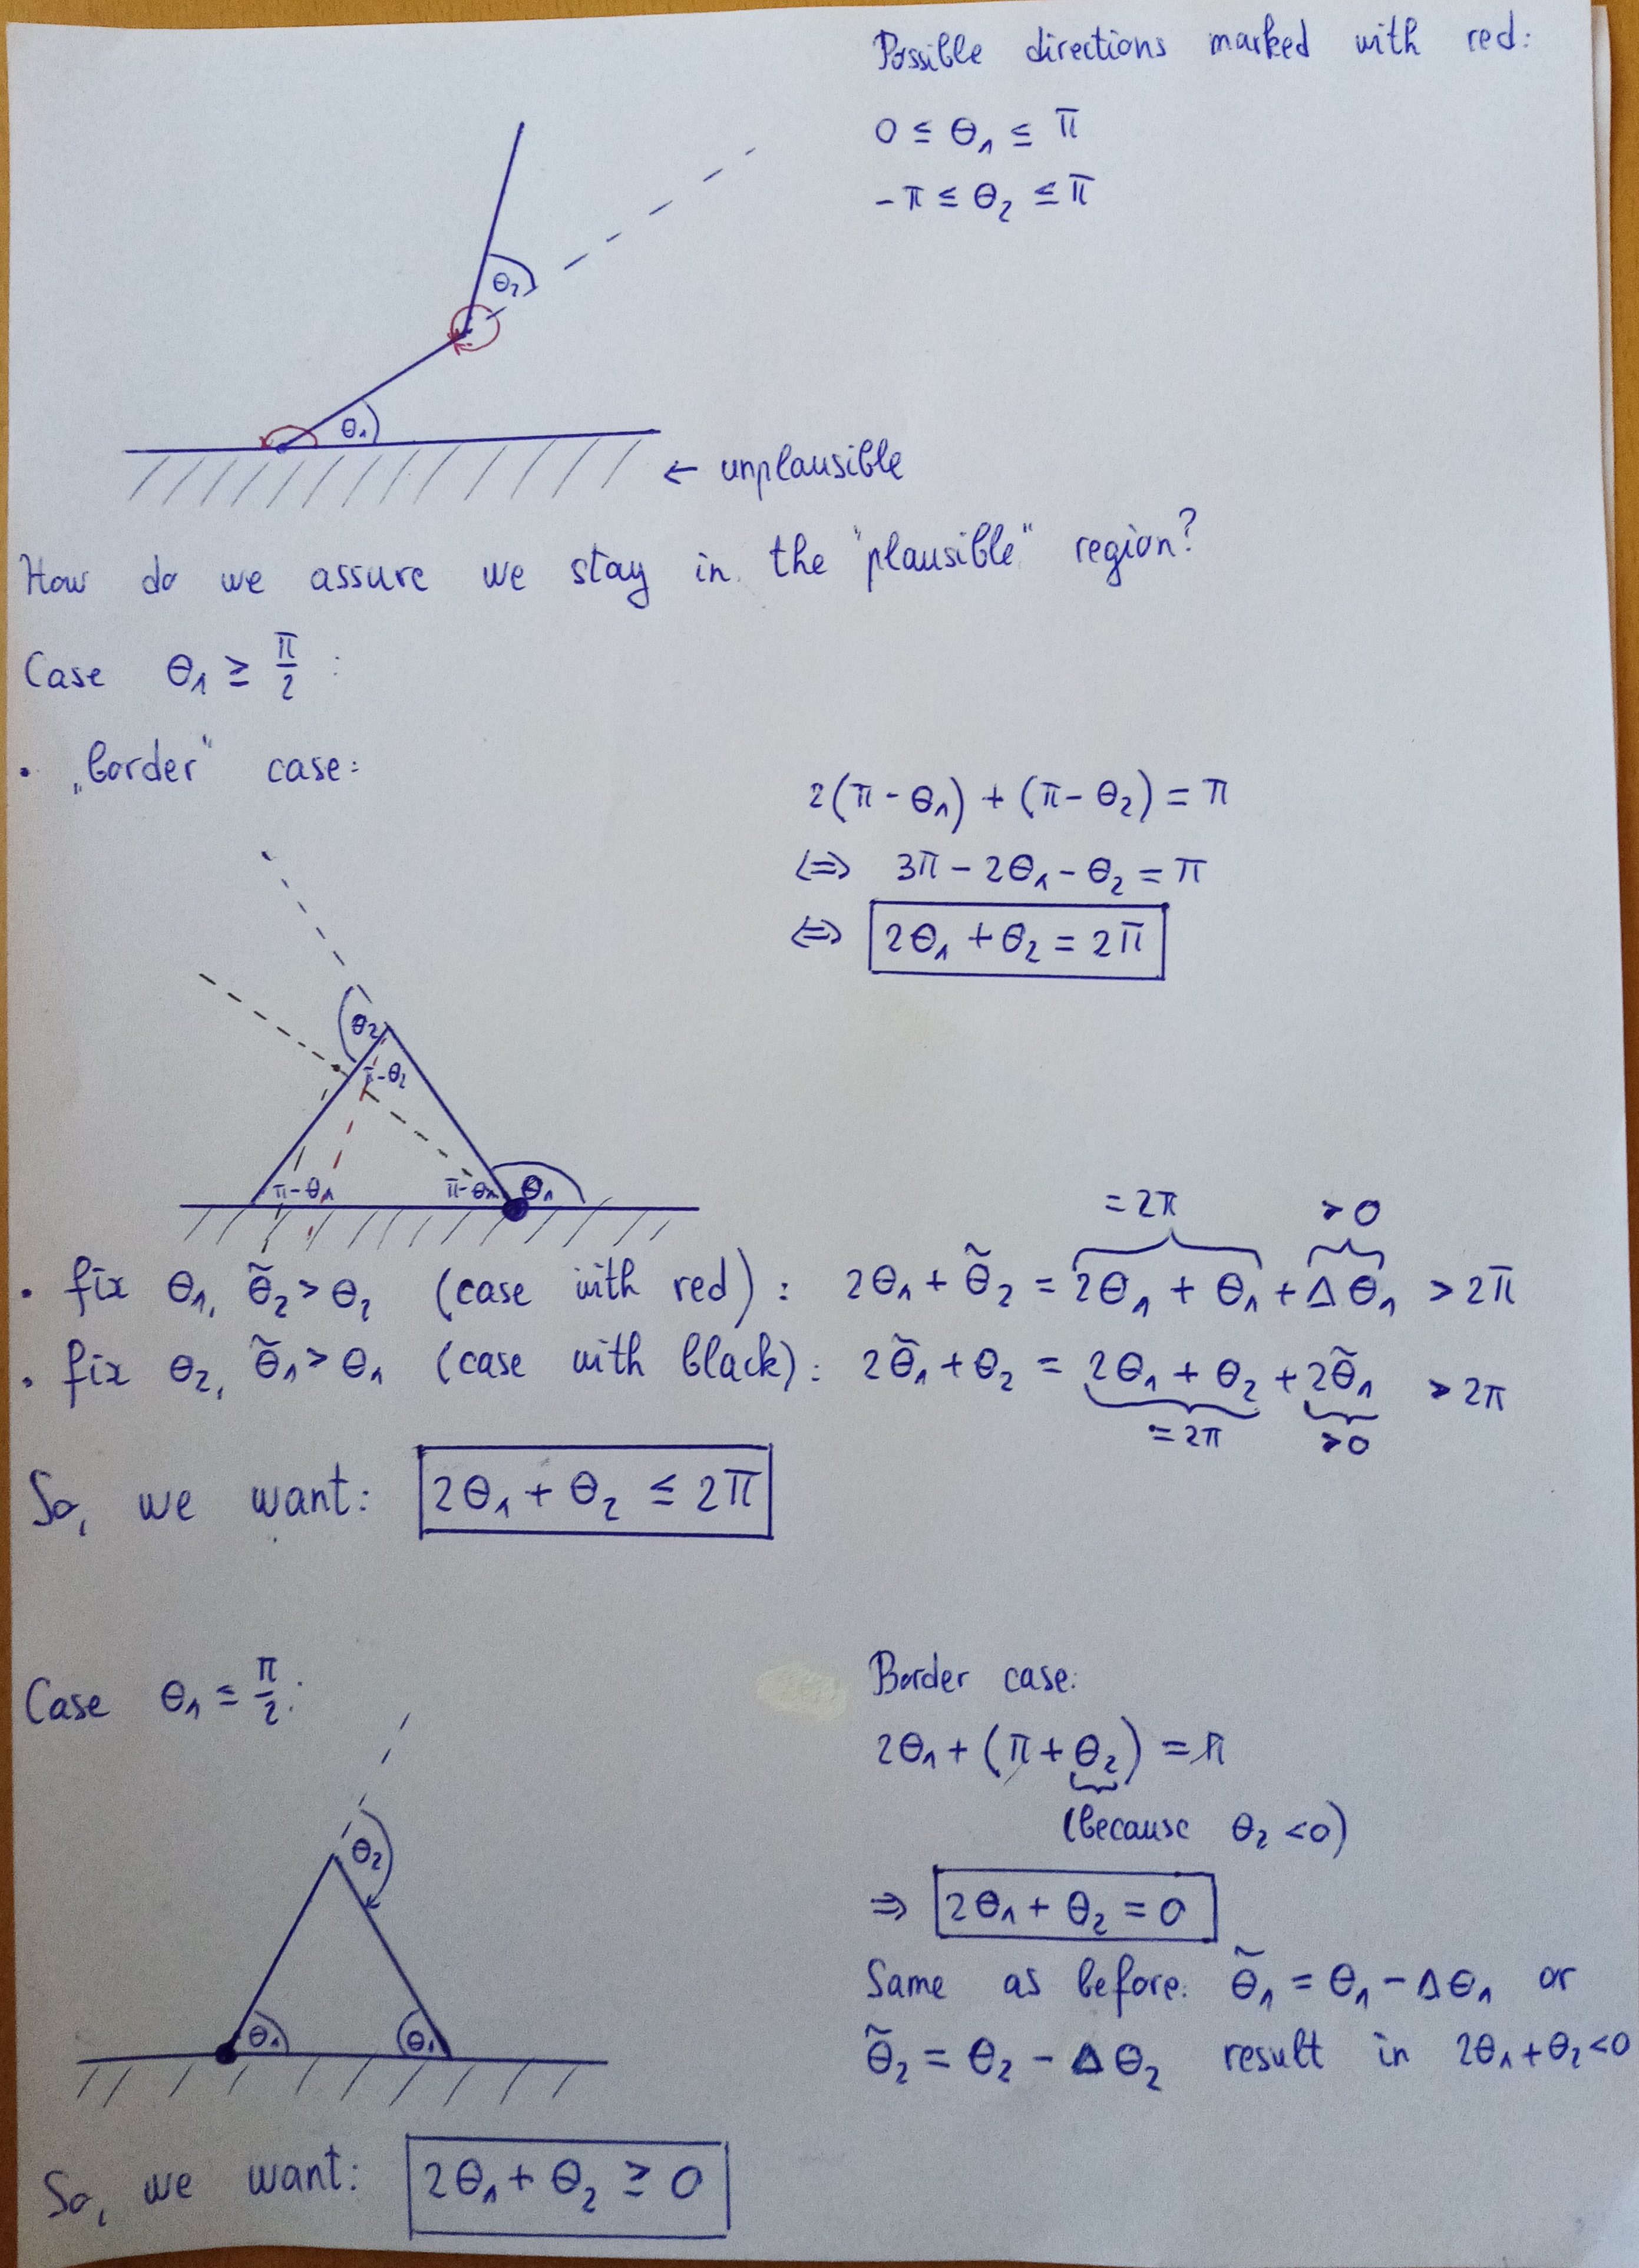 Possible directions marked with red:
0 ≤ θ₁ ≤ π
-π ≤ θ₂ ≤ π
θ₂
θ₁
← unplausible
How do we assure we stay in the "plausible" region?
Case θ₁ ≥ π/2 :
• „border" case:
2(π - θ₁) + (π - θ₂) = π
⇔ 3π - 2θ₁ - θ₂ = π
⇔ 2θ₁ + θ₂ = 2π
θ₂
π-θ₂
π-θ₁ π-θ₁ θ₁
= 2π > 0
• fix θ₁, θ̃₂ > θ₂ (case with red) : 2θ₁ + θ̃₂ = 2θ₁ + θ₁ + Δθ₁ > 2π
• fix θ₂, θ̃₁ > θ₁ (case with black) : 2θ̃₁ + θ₂ = 2θ₁ + θ₂ + 2θ̃₁ > 2π
= 2π >0
So, we want: 2θ₁ + θ₂ ≤ 2π
Case θ₁ ≤ π/2 :
Border case:
2θ₁ + (π + θ₂) = π
(because θ₂ < 0)
θ₂
⇒ 2θ₁ + θ₂ = 0
Same as before: θ̃₁ = θ₁ - Δθ₁ or
θ̃₂ = θ₂ - Δθ₂ result in 2θ₁ + θ₂ < 0
θ₁ θ₁
So, we want: 2θ₁ + θ₂ ≥ 0